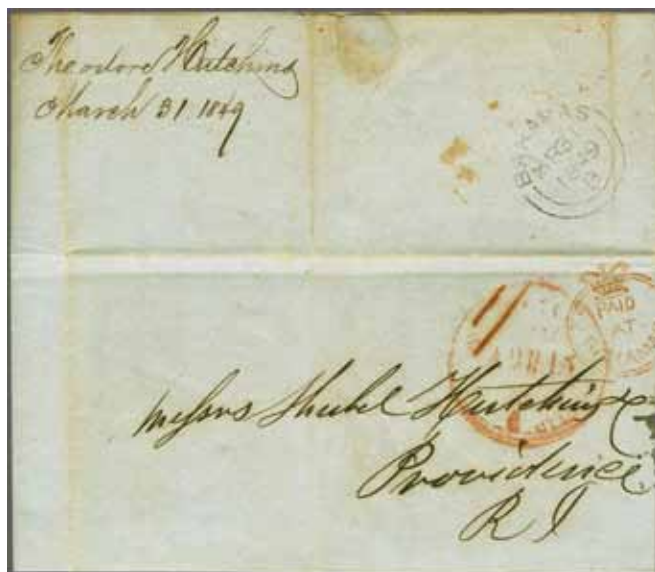 Theodore Hutchins
March 31 1849
BAHAMAS
1849
PAID
AT
Messrs Shubel Hutchins
Providence
R I